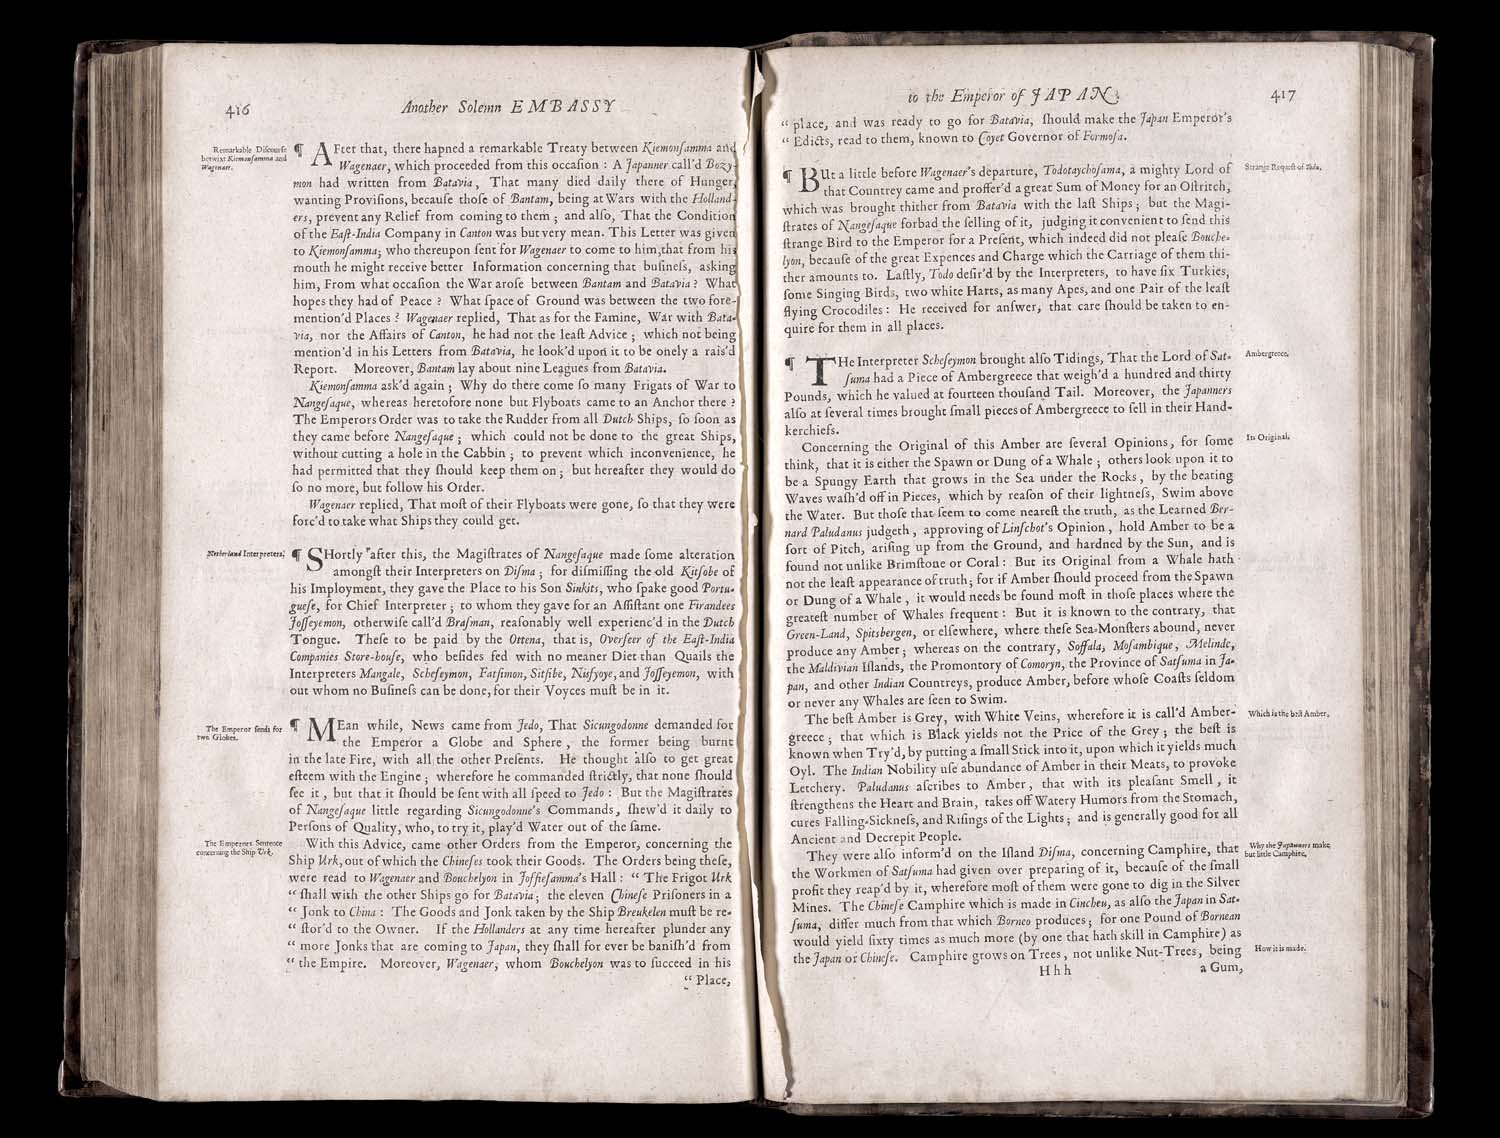 416
Another Solemn EMBASSY
Remarkable Diſcourſe
betwixt Kiemonſamma and
Wagenaer.
¶ AFter that, there hapned a remarkable Treaty between Kiemonſamma and
Wagenaer, which proceeded from this occaſion : A Japanner call'd Bozy-
mon had written from Batavia, That many died daily there of Hunger,
wanting Proviſions, becauſe thoſe of Bantam, being at Wars with the Holland-
ers, prevent any Relief from coming to them ; and alſo, That the Condition
of the Eaſt-India Company in Canton was but very mean. This Letter was given
to Kiemonſamma; who thereupon ſent for Wagenaer to come to him, that from his
mouth he might receive better Information concerning that buſineſs, asking
him, From what occaſion the War aroſe between Bantam and Batavia ? What
hopes they had of Peace ? What ſpace of Ground was between the two fore-
mention'd Places ? Wagenaer replied, That as for the Famine, War with Bata-
via, nor the Affairs of Canton, he had not the leaſt Advice ; which not being
mention'd in his Letters from Batavia, he look'd upon it to be onely a rais'd
Report. Moreover, Bantam lay about nine Leagues from Batavia.
Kiemonſamma ask'd again ; Why do there come ſo many Frigats of War to
Nangeſaque, whereas heretofore none but Flyboats came to an Anchor there ?
The Emperors Order was to take the Rudder from all Dutch Ships, ſo ſoon as
they came before Nangeſaque ; which could not be done to the great Ships,
without cutting a hole in the Cabbin ; to prevent which inconvenience, he
had permitted that they ſhould keep them on ; but hereafter they would do
ſo no more, but follow his Order.
Wagenaer replied, That moſt of their Flyboats were gone, ſo that they were
forc'd to take what Ships they could get.
Netherland Interpreters.
¶ SHortly after this, the Magiſtrates of Nangeſaque made ſome alteration
amongſt their Interpreters on Diſma ; for diſmiſſing the old Kitſobe of
his Imployment, they gave the Place to his Son Sinkits, who ſpake good Portu-
gueſe, for Chief Interpreter ; to whom they gave for an Aſſiſtant one Firandees
Joſſeyemon, otherwiſe call'd Braſman, reaſonably well experienc'd in the Dutch
Tongue. Theſe to be paid by the Ottena, that is, Overſeer of the Eaſt-India
Companies Store-houſe, who beſides fed with no meaner Diet than Quails the
Interpreters Mangale, Scheſeymon, Fatſimon, Sitſibe, Niſyoye, and Joſſeyemon, with
out whom no Buſineſs can be done, for their Voyces muſt be in it.
The Emperor ſends for
two Globes.
¶ MEan while, News came from Jedo, That Sicungodonne demanded for
the Emperor a Globe and Sphere, the former being burnt
in the late Fire, with all the other Preſents. He thought alſo to get great
eſteem with the Engine ; wherefore he commanded ſtrictly, that none ſhould
ſee it, but that it ſhould be ſent with all ſpeed to Jedo : But the Magiſtrates
of Nangeſaque little regarding Sicungodonne's Commands, ſhew'd it daily to
Perſons of Quality, who, to try it, play'd Water out of the ſame.
The Emperors Sentence
concerning the Ship Urk.
With this Advice, came other Orders from the Emperor, concerning the
Ship Urk, out of which the Chineſes took their Goods. The Orders being theſe,
were read to Wagenaer and Bouchelyon in Joffieſamma's Hall : “ The Frigot Urk
“ ſhall with the other Ships go for Batavia ; the eleven Chineſe Priſoners in a
“ Jonk to China : The Goods and Jonk taken by the Ship Breukelen muſt be re-
“ ſtor'd to the Owner. If the Hollanders at any time hereafter plunder any
“ more Jonks that are coming to Japan, they ſhall for ever be baniſh'd from
“ the Empire. Moreover, Wagenaer, whom Bouchelyon was to ſucceed in his
“ Place,
to the Emperor of JAPAN.
417
“ place, and was ready to go for Batavia, ſhould make the Japan Emperor's
“ Edicts, read to them, known to Coyet Governor of Formoſa.
¶ BUt a little before Wagenaer's departure, Todotaychoſama, a mighty Lord of
that Countrey came and proffer'd a great Sum of Money for an Oſtritch,
which was brought thither from Batavia with the laſt Ships ; but the Magi-
ſtrates of Nangeſaque forbad the ſelling of it, judging it convenient to ſend this
ſtrange Bird to the Emperor for a Preſent, which indeed did not pleaſe Bouche-
lyon, becauſe of the great Expences and Charge which the Carriage of them thi-
ther amounts to. Laſtly, Todo deſir'd by the Interpreters, to have ſix Turkies,
ſome Singing Birds, two white Harts, as many Apes, and one Pair of the leaſt
flying Crocodiles : He received for anſwer, that care ſhould be taken to en-
quire for them in all places.
Strange Requeſt of Todo.
¶ THe Interpreter Scheſeymon brought alſo Tidings, That the Lord of Sat-
ſuma had a Piece of Ambergreece that weigh'd a hundred and thirty
Pounds, which he valued at fourteen thouſand Tail. Moreover, the Japanners
alſo at ſeveral times brought ſmall pieces of Ambergreece to ſell in their Hand-
kerchiefs.
Ambergreece.
Concerning the Original of this Amber are ſeveral Opinions, for ſome
think, that it is either the Spawn or Dung of a Whale ; others look upon it to
be a Spungy Earth that grows in the Sea under the Rocks, by the beating
Waves waſh'd off in Pieces, which by reaſon of their lightneſs, Swim above
the Water. But thoſe that ſeem to come neareſt the truth, as the Learned Ber-
nard Paludanus judgeth, approving of Linſchot's Opinion, hold Amber to be a
ſort of Pitch, ariſing up from the Ground, and hardned by the Sun, and is
found not unlike Brimſtone or Coral : But its Original from a Whale hath
not the leaſt appearance of truth ; for if Amber ſhould proceed from the Spawn
or Dung of a Whale, it would needs be found moſt in thoſe places where the
greateſt number of Whales frequent : But it is known to the contrary, that
Green-Land, Spitsbergen, or elſewhere, where theſe Sea-Monſters abound, never
produce any Amber ; whereas on the contrary, Soffala, Moſambique, Melinde,
the Maldivian Iſlands, the Promontory of Comoryn, the Province of Satſuma in Ja-
pan, and other Indian Countreys, produce Amber, before whoſe Coaſts ſeldom
or never any Whales are ſeen to Swim.
Its Original.
The beſt Amber is Grey, with White Veins, wherefore it is call'd Amber-
greece ; that which is Black yields not the Price of the Grey ; the beſt is
known when Try'd, by putting a ſmall Stick into it, upon which it yields much
Oyl. The Indian Nobility uſe abundance of Amber in their Meats, to provoke
Letchery. Paludanus aſcribes to Amber, that with its pleaſant Smell, it
ſtrengthens the Heart and Brain, takes off Watery Humors from the Stomach,
cures Falling-Sickneſs, and Riſings of the Lights ; and is generally good for all
Ancient and Decrepit People.
Which is the beſt Amber.
They were alſo inform'd on the Iſland Diſma, concerning Camphire, that
the Workmen of Satſuma had given over preparing of it, becauſe of the ſmall
profit they reap'd by it, wherefore moſt of them were gone to dig in the Silver
Mines. The Chineſe Camphire which is made in Cincheu, as alſo the Japan in Sat-
ſuma, differ much from that which Borneo produces ; for one Pound of Bornean
would yield ſixty times as much more (by one that hath skill in Camphire) as
the Japan or Chineſe. Camphire grows on Trees, not unlike Nut-Trees, being
Why the Japanners make
but little Camphire.
How it is made.
Hhh
a Gum,